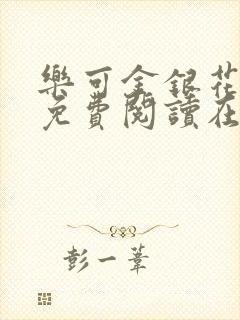 樂可金銀花
免費閱讀在
彭一葦